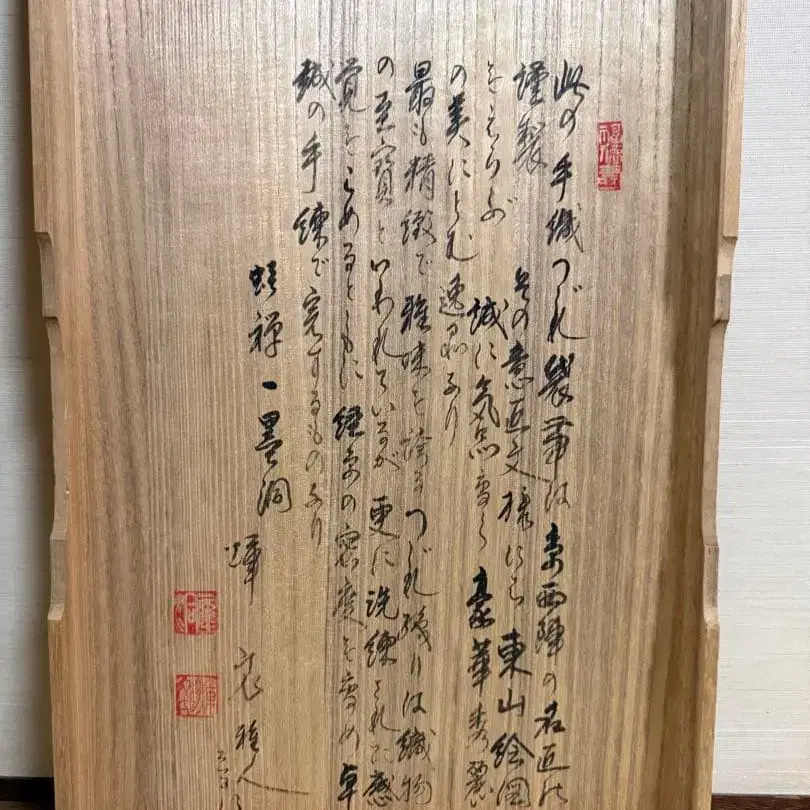 此の手織つづれ製帯は京西陣の名匠の
謹製 その意匠文様にも東山絵図
をえらび 誠に気品高く豪華秀麗
の美にとむ逸品なり
最も精緻で雅味を誇るつづれ織りは織物
の至宝といわれているが 更に洗練された感
覚をこめるとともに 経糸の密度を高め 卓
越の手練で完するものなり
禅一墨洞
雅人